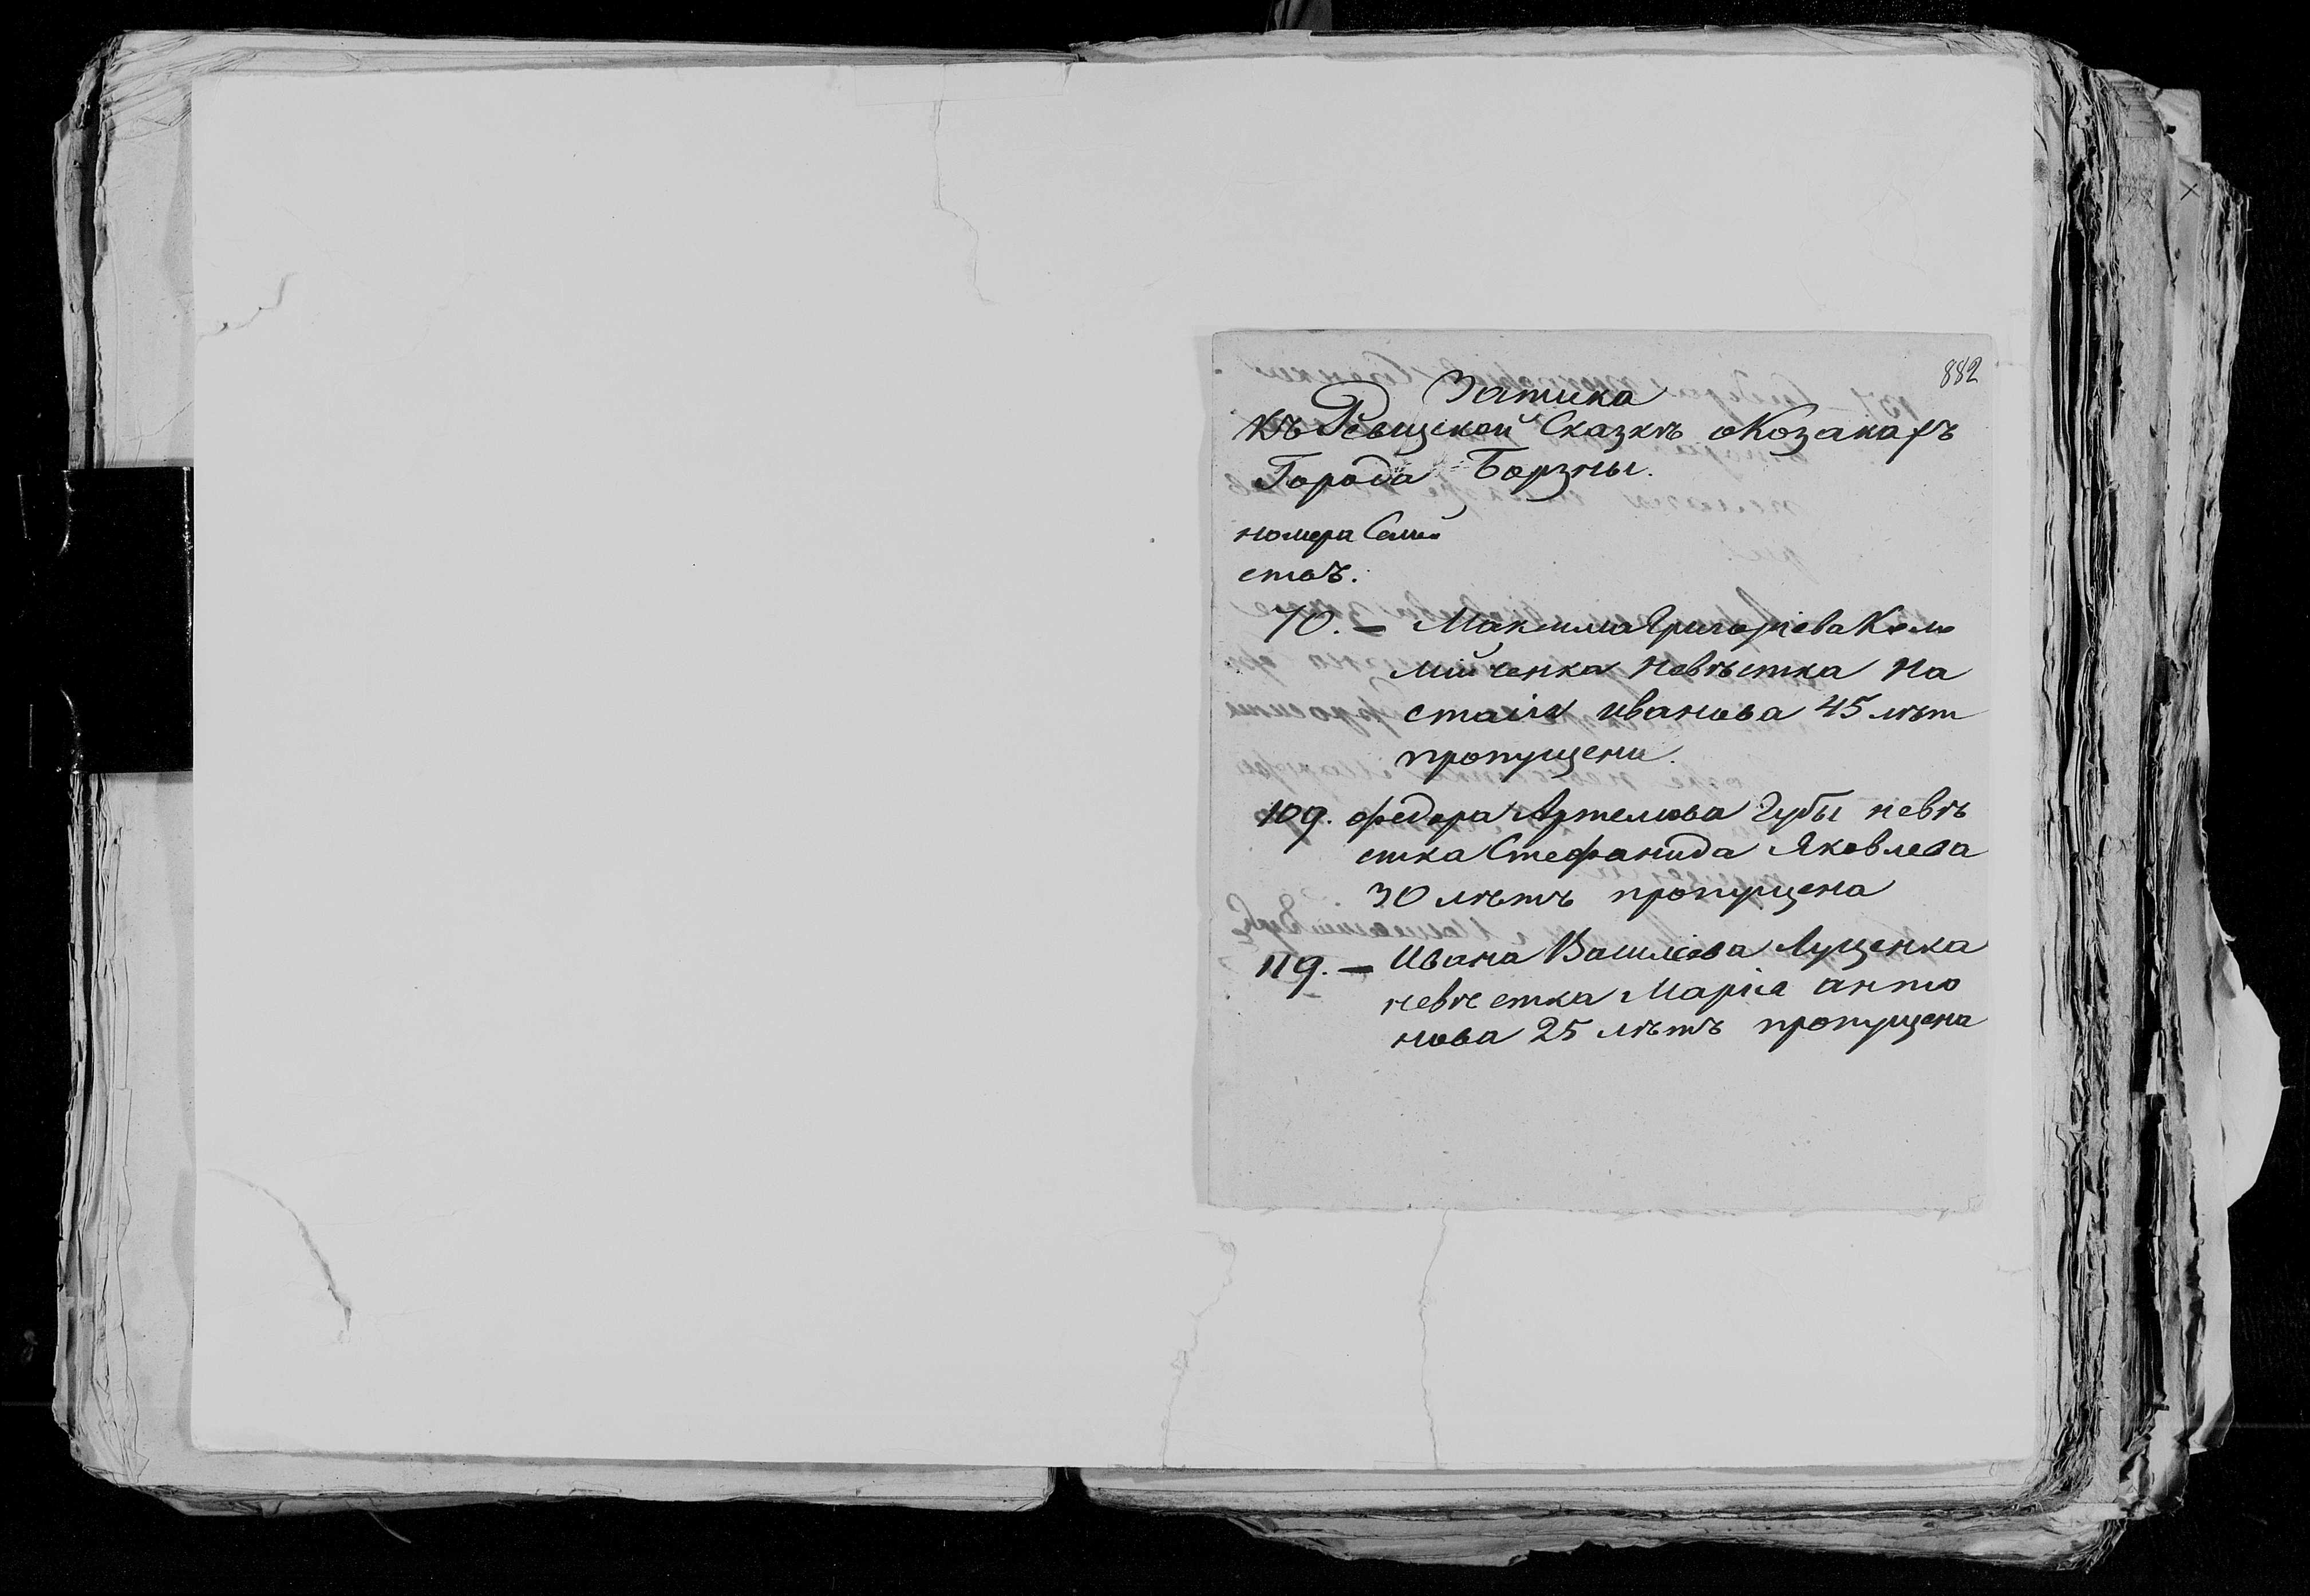 882
Записка
къ Ревизской Сказкѣ о Козакахъ
Города Борзны.
номера Семей
ствъ.
70. — Максима Григорiева Коло
мiйченка невѣстка На
стасiя иванова 45 лѣт
пропущена.
109. федора Артемова Губы невѣ
стка Стефанида Яковлева
30 лѣтъ пропущена
119. — Ивана Василiева Лущенка
невѣстка Марiя анто
нова 25 лѣтъ пропущена